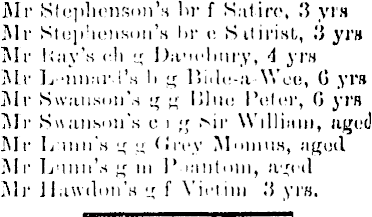 Mr Stephenson's br f Satire, 3 yrs
Mr Stephenson's br c Satirist, 3 yrs
Mr Ray's ch g Danebury, 4 yrs
Mr Lennard's b g Bide-a-Wee, 6 yrs
Mr Swanson's g g Blue Peter, 6 yrs
Mr Swanson's c g Sir William, aged
Mr Lunn's g g Grey Momus, aged
Mr Lunn's g m Phantom, aged
Mr Hawdon's g f Victim 3 yrs.